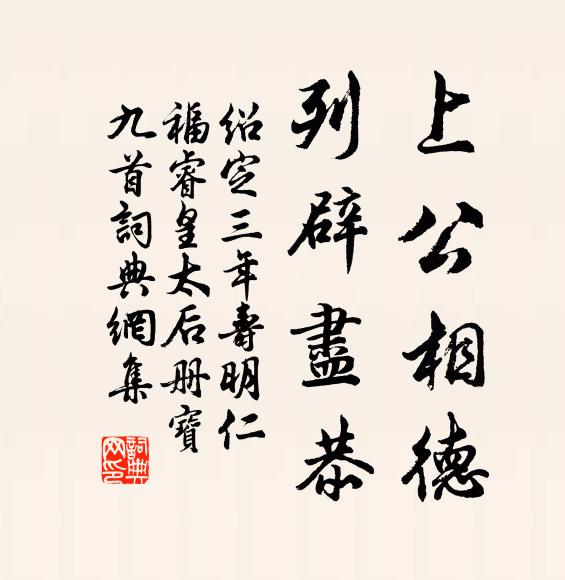 上公相德
列辟盡恭
绍定三年壽明仁
福睿皇太后册寶
九首詞典網集
詞典網印